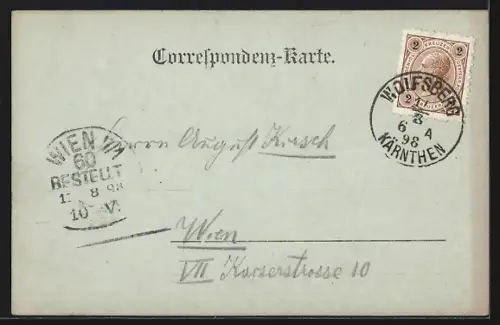 Correspondenz-Karte.
2 KREUZER 2
WOLFSBERG
8
6 A
98
KÄRNTHEN
WIEN
60
BESTELLT
8 98
10 V.
Herrn August Kirsch
Wien
VII Kaiserstrasse 10